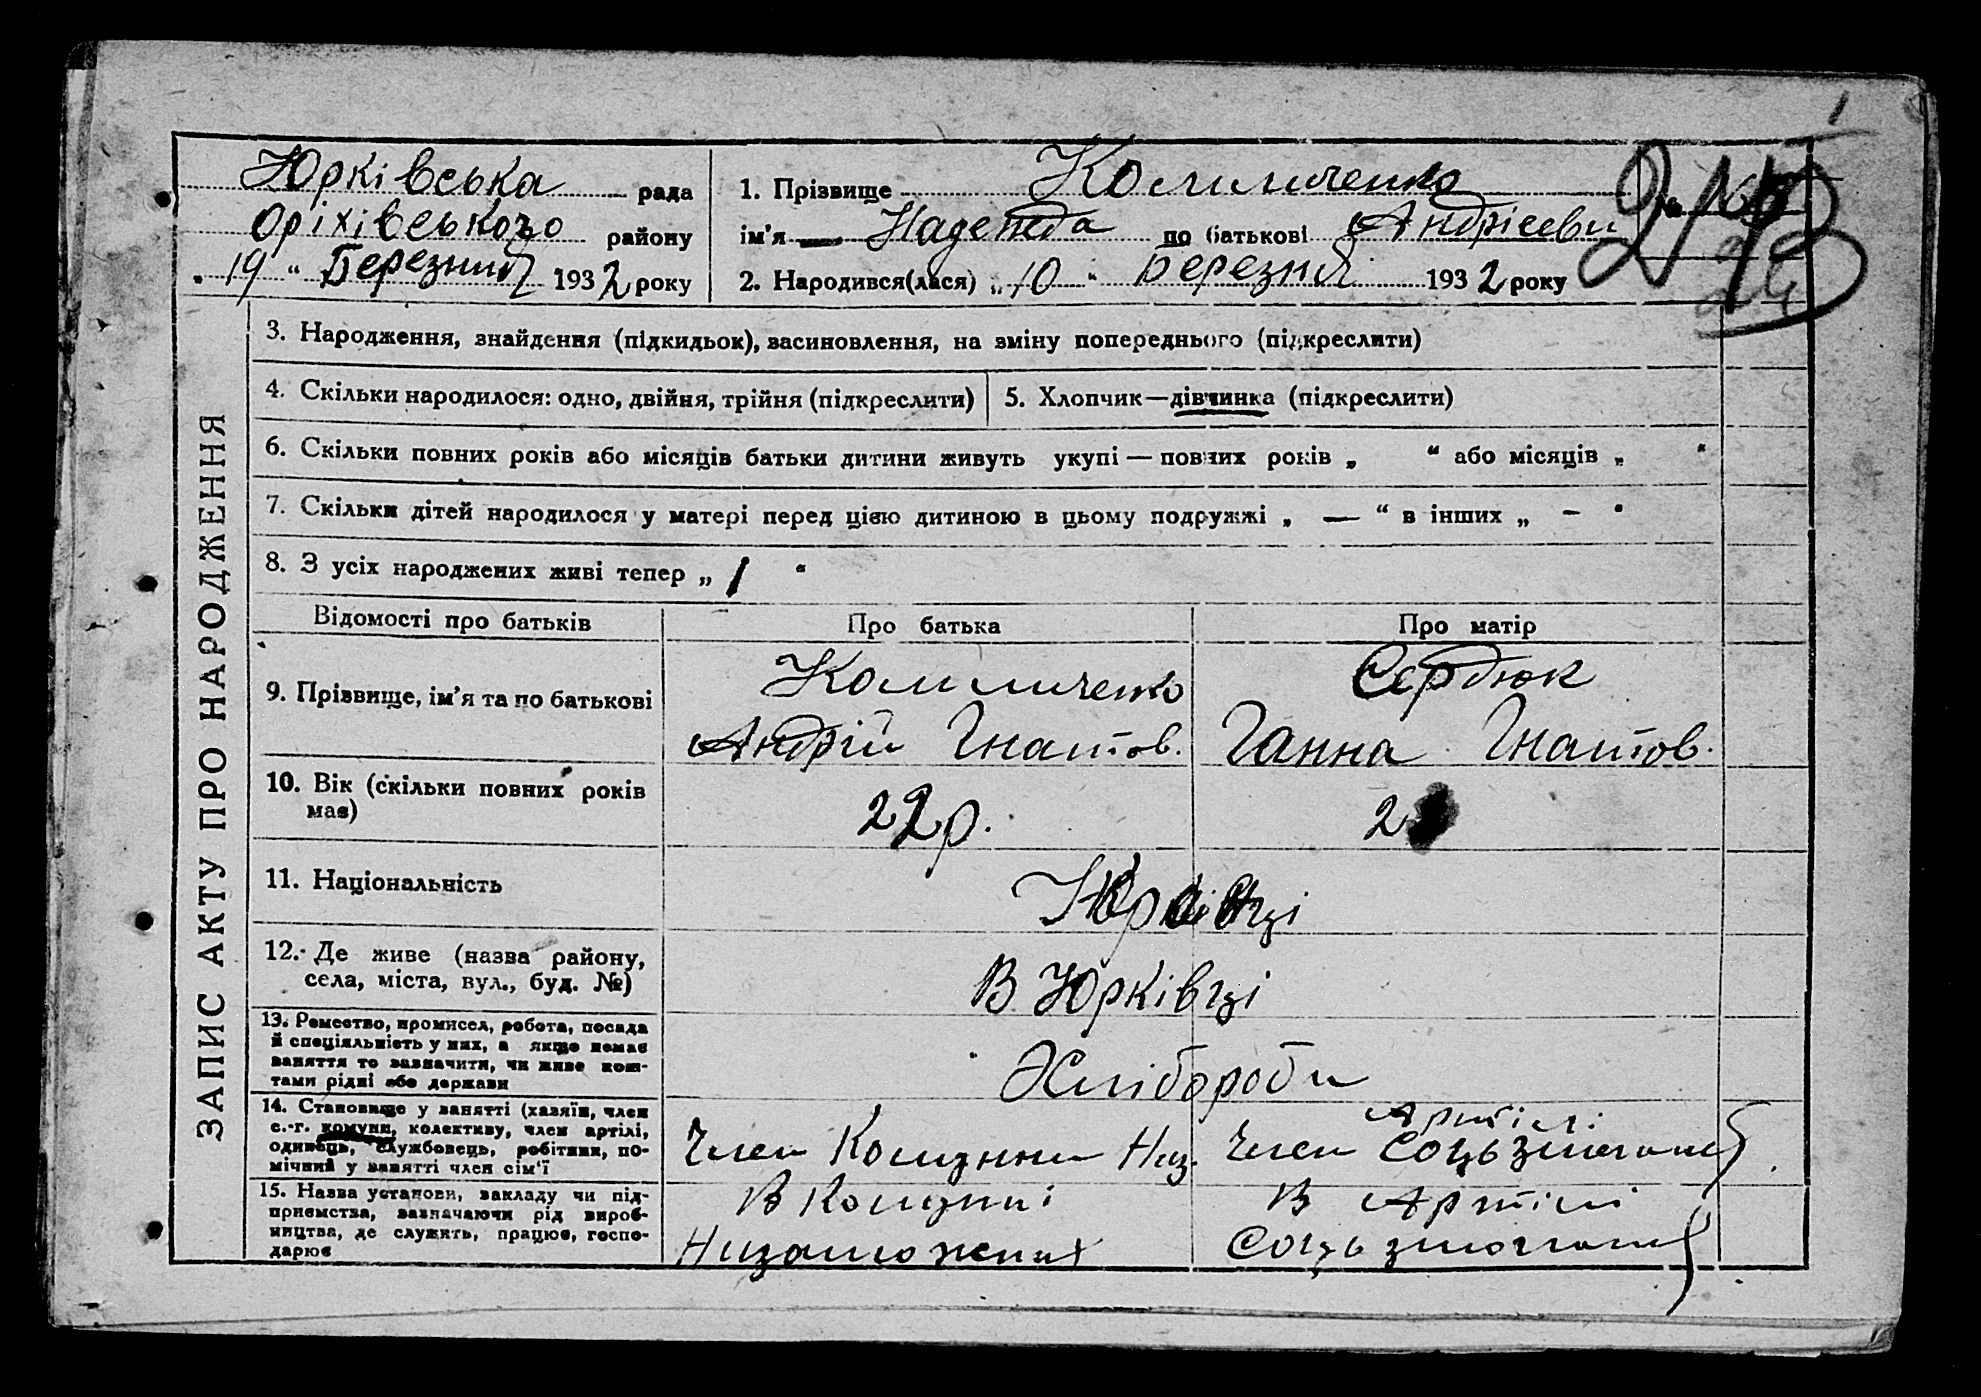 Юрківська рада
Оріхівського району
„ 19 “ Березня 1932 року
1. Прізвище
ім'я — Надежда по батькові Андрієевн
2. Народився(лася) „ 10 “ Березня 1932 року
ЗАПИС АКТУ ПРО НАРОДЖЕННЯ
3. Народження, знайдення (підкидьок), васиновлення, на зміну попереднього (підкреслити)
4. Скільки народилося: одно, двійня, трійня (підкреслити)
5. Хлопчик—дівчинка (підкреслити)
6. Скільки повних років або місяців батьки дитини живуть укупі — повних років „ “ або місяців „ “
7. Скільки дітей народилося у матері перед цією дитиною в цьому подружжі „ — “ в інших „ – “
8. З усіх народжених живі тепер „ 1 “
Відомості про батьків
Про батька
Про матір
9. Прізвище, ім'я та по батькові
Андрій Гнатов.
Сердюк
Ганна Гнатов.
10. Вік (скільки повних років
має)
22 р.
2
11. Національність
12. Де живе (назва району,
села, міста, вул., буд. №)
В Юрківці
13. Ремество, промисел, робота, посада
й спеціяльність у них, а якщо немає
заняття то зазначити, чи живе кош-
тами рідні або держави
Хлібороби
14. Становище у занятті (хазяїн, член
с.-г. комуни, колективу, член артілі,
одинець, службовець, робітник, по-
мічний у занятті член сім'ї
Член Комунни Низ.
Артілі
Член Соцьзмагання
15. Назва установи, закладу чи під-
приємства, зазначаючи рід вироб-
ництва, де служить, працює, госпо-
дарює
В Комунні
Незаможник
В Артілі
Соцьзмагання